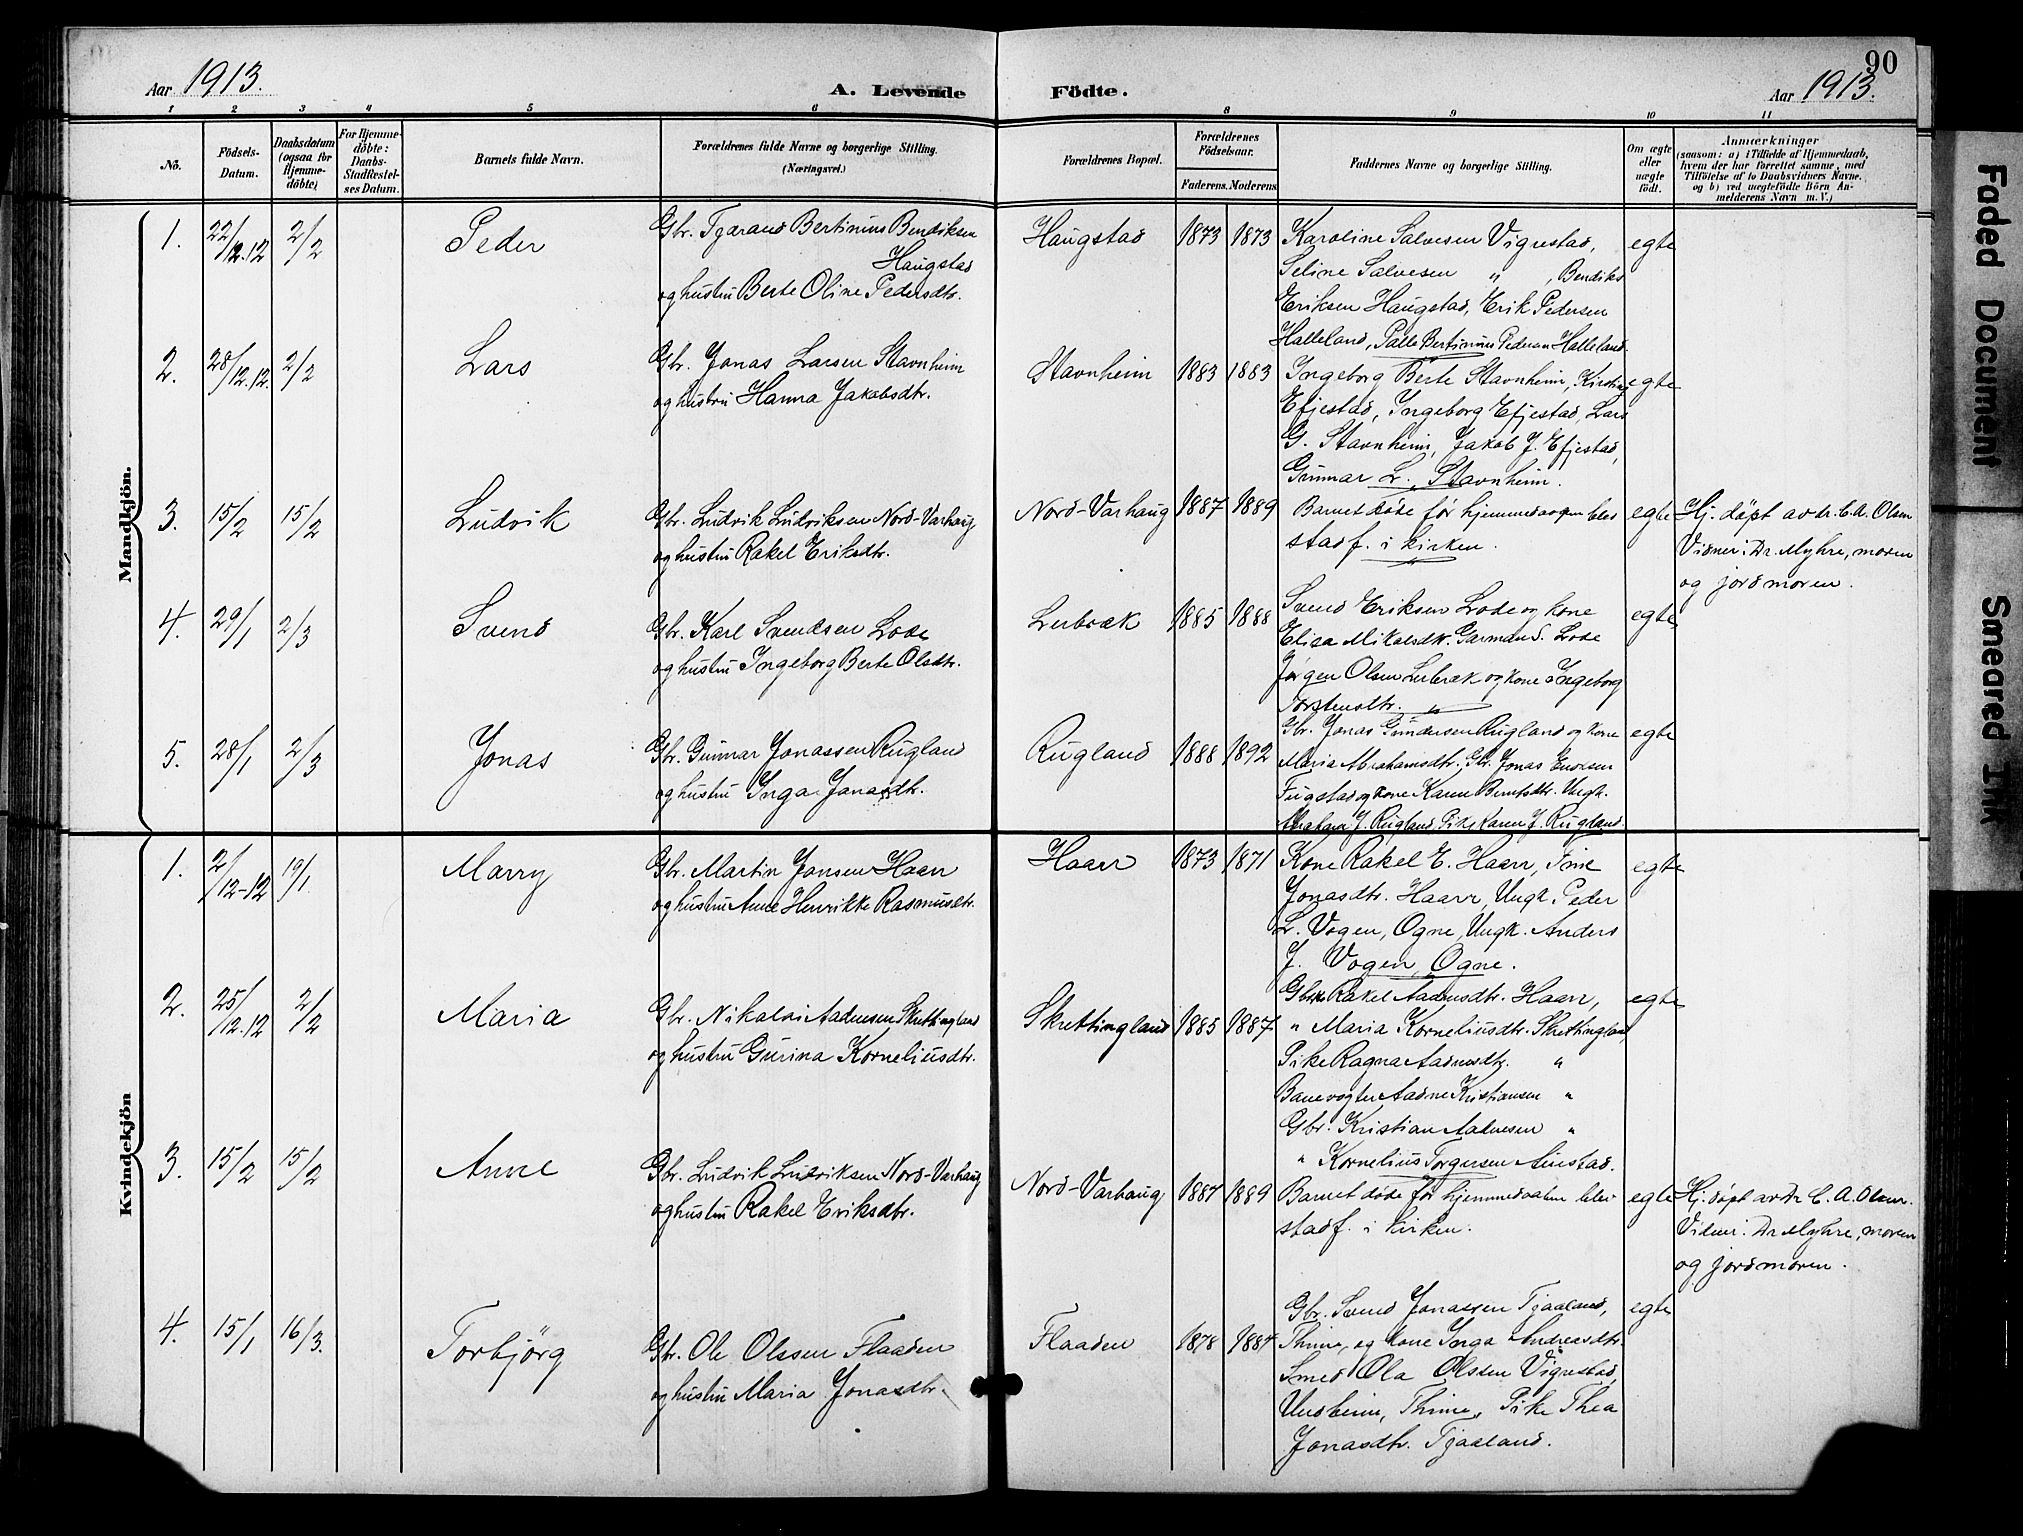 90
Aar 1913.
A. Levende
Födte.
Aar 1913.
1 2 3 4 5 6 8 9 10 11
No.
Födsels-
Datum.
Daabsdatum
(ogsaa for
Hjemme-
döbte)
For Hjemme-
döbte:
Daabs-
Stadfæstel-
ses Datum.
Barnets fulde Navn.
Forældrenes fulde Navne og borgerlige Stilling.
(Næringsvei.)
Forældrenes Bopæl.
Forældrenes
Födselsaar.
Faderens. Moderens.
Faddernes Navne og borgerlige Stilling.
Om ægte
eller
uægte
födt.
Anmærkninger
(saasom: a) i Tilfælde af Hjemmedaab,
hvem der har forrettet samme, med
Tilföielse af to Daabsvidners Navne.
og b) ved uægtefödte Börn An-
melderens Navn m. V.)
Mandkjön.
1. 22/12.12 2/2 Peder
Gbr. Tjærand Bertinius Bendiksen
Haugstad
og hustru Berte Oline Pedersdtr.
Haugstad 1873 1873
Karoline Salvesen Vigrestad,
Seline Salvesen " , Bendiks
Eriksen Haugstad, Erik Pedersen
Halleland, Palle Bertinius Pedersen Halleland.
egte
2. 28/12.12. 2/2 Lars
Gbr. Jonas Larsen Stavnheim
og hustru Hanna Jakobsdtr.
Stavnheim 1883 1883
Ingeborg Berte Stavnheim, Kirstine
Efjestad, Ingeborg Efjestad, Lars
G. Stavnheim, Jakob J. Efjestad,
Gunnar L. Stavnheim.
egte
3. 15/2 15/2 Ludvik
Gbr. Ludvik Ludviksen Nord-Varhaug
og hustru Rakel Eriksdtr.
Nord-Varhaug 1887 1889
Barnet døde før hjemmedaapen blev
stadf. i kirken.
egte
Hj. døpt av dr. C. A. Olsen
Vidner: Dr. Myhre, moren
og jordmoren.
4. 29/1 2/3 Svend
Gbr. Karl Svendsen Lode
og hustru Ingeborg Berte Olsdtr.
Lerbræk 1885 1888
Svend Eriksen Lode og kone
Elisa Mikalsdtr. Garman S. Lode
Jørgen Olsen Lerbræk og kone Ingeborg
Torstensdtr. "
egte
5. 28/1 2/3 Jonas
Gbr. Gunnar Jonassen Rugland
og hustru Inga Jonasdtr.
Rugland 1888 1892
Gbr. Jonas Gundersen Rugland og kone
Maria Abrahamsdtr. Gbr. Jonas Enoksen
Fugstad og kone Karen Berntsdtr. Ungk.
Abraham J. Rugland. Pike Karen J. Rugland.
egte
Kvindekjön
1. 2/12-12 19/1. Marry
Gbr. Martin Jansen Haarr
og hustru Anne Henrikke Rasmusdtr.
Haarr 1873 1871
Kone Rakel E. Haarr, Fine
Jonasdtr. Haarr, Ungk. Peder
L. Vogen, Ogne, Ungk. Anders
J. Vogen, Ogne.
egte
2. 25/12.12 2/2 Maria
Gbr. Nikolai Aadnesen Skrettingland
og hustru Gurina Korneliusdtr.
Skrettingland 1885 1887
Gbrske Rakel Aadnesdtr. Haarr,
" Maria Korneliusdtr. Skrettingland,
Pike Ragna Aadnesdtr. "
Banevogter Aadne Kristiansen "
Gbr. Kristian Aadnesen "
" Kornelius Torgersen Auestad.
egte
3. 15/2 15/2 Anne
Gbr. Ludvik Ludviksen Nord-Varhaug
og hustru Rakel Eriksdtr.
Nord-Varhaug 1887 1889
Barnet døde før hjemmedaapen blev
stadf. i kirken.
egte
Hj. døpt av Dr. C. A. Olsen.
Vidner: Dr Myhre, moren
og jordmoren.
4. 15/1 16/3. Torbjörg
Gbr. Ole Olssen Flaaden
og hustru Maria Jonasdtr.
Flaaden 1878 1887
Gbr. Svend Jonassen Tjaaland,
Thime, og kone Inga Andreasdtr.
Smed Ola Olssen Vigrestad,
Undheim, Thime, Pike Thea
Jonasdtr. Tjaaland.
egte
Faded Document
Smeared Ink